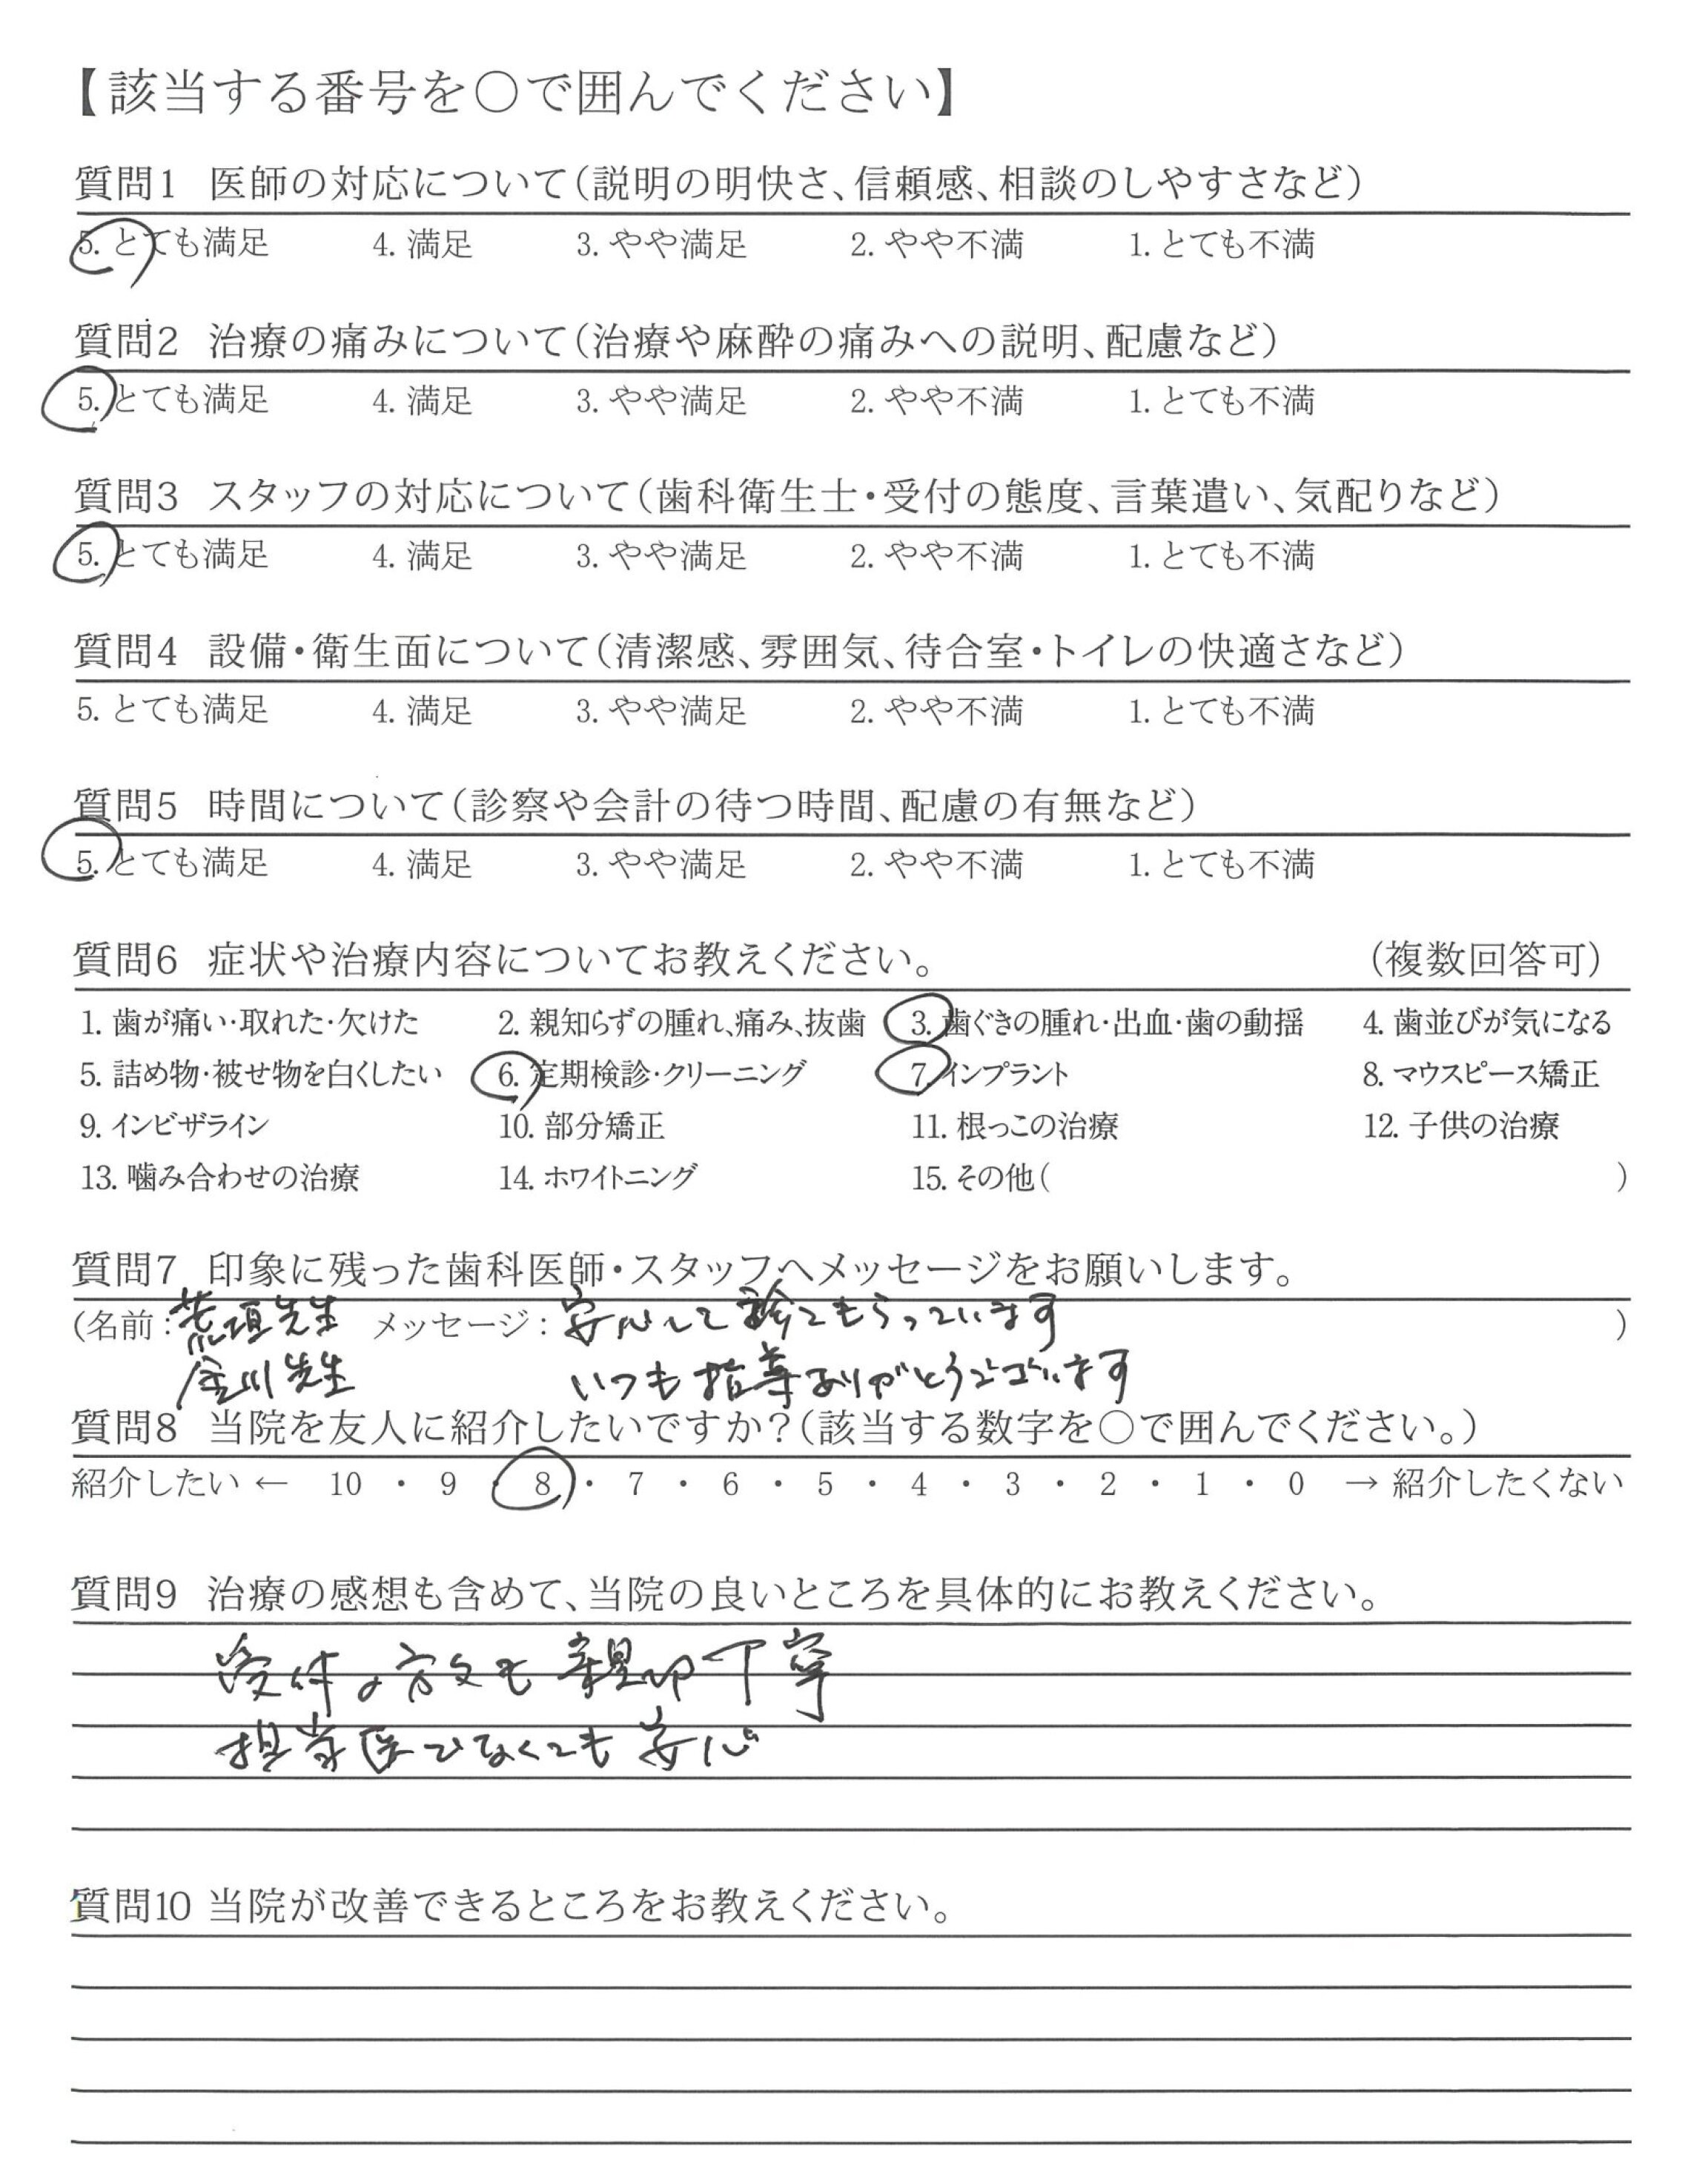 【該当する番号を○で囲んでください】
質問1 医師の対応について(説明の明快さ、信頼感、相談のしやすさなど)
5. とても満足 4. 満足 3. やや満足 2. やや不満 1. とても不満
質問2 治療の痛みについて(治療や麻酔の痛みへの説明、配慮など)
5. とても満足 4. 満足 3. やや満足 2. やや不満 1. とても不満
質問3 スタッフの対応について(歯科衛生士・受付の態度、言葉遣い、気配りなど)
5. とても満足 4. 満足 3. やや満足 2. やや不満 1. とても不満
質問4 設備・衛生面について(清潔感、雰囲気、待合室・トイレの快適さなど)
5. とても満足 4. 満足 3. やや満足 2. やや不満 1. とても不満
質問5 時間について(診察や会計の待つ時間、配慮の有無など)
5. とても満足 4. 満足 3. やや満足 2. やや不満 1. とても不満
質問6 症状や治療内容についてお教えください。 (複数回答可)
1. 歯が痛い・取れた・欠けた 2. 親知らずの腫れ、痛み、抜歯 3. 歯ぐきの腫れ・出血・歯の動揺 4. 歯並びが気になる
5. 詰め物・被せ物を白くしたい 6. 定期検診・クリーニング 7. インプラント 8. マウスピース矯正
9. インビザライン 10. 部分矯正 11. 根っこの治療 12. 子供の治療
13. 噛み合わせの治療 14. ホワイトニング 15. その他( )
質問7 印象に残った歯科医師・スタッフへメッセージをお願いします。
(名前: 先生 メッセージ: 安心して診てもらっています )
金川先生 いつも指導ありがとうございます
質問8 当院を友人に紹介したいですか?(該当する数字を○で囲んでください。)
紹介したい ← 10 ・ 9 ・ 8 ・ 7 ・ 6 ・ 5 ・ 4 ・ 3 ・ 2 ・ 1 ・ 0 → 紹介したくない
質問9 治療の感想も含めて、当院の良いところを具体的にお教えください。
受付の方々も親切丁寧
担当医でなくても安心
質問10 当院が改善できるところをお教えください。